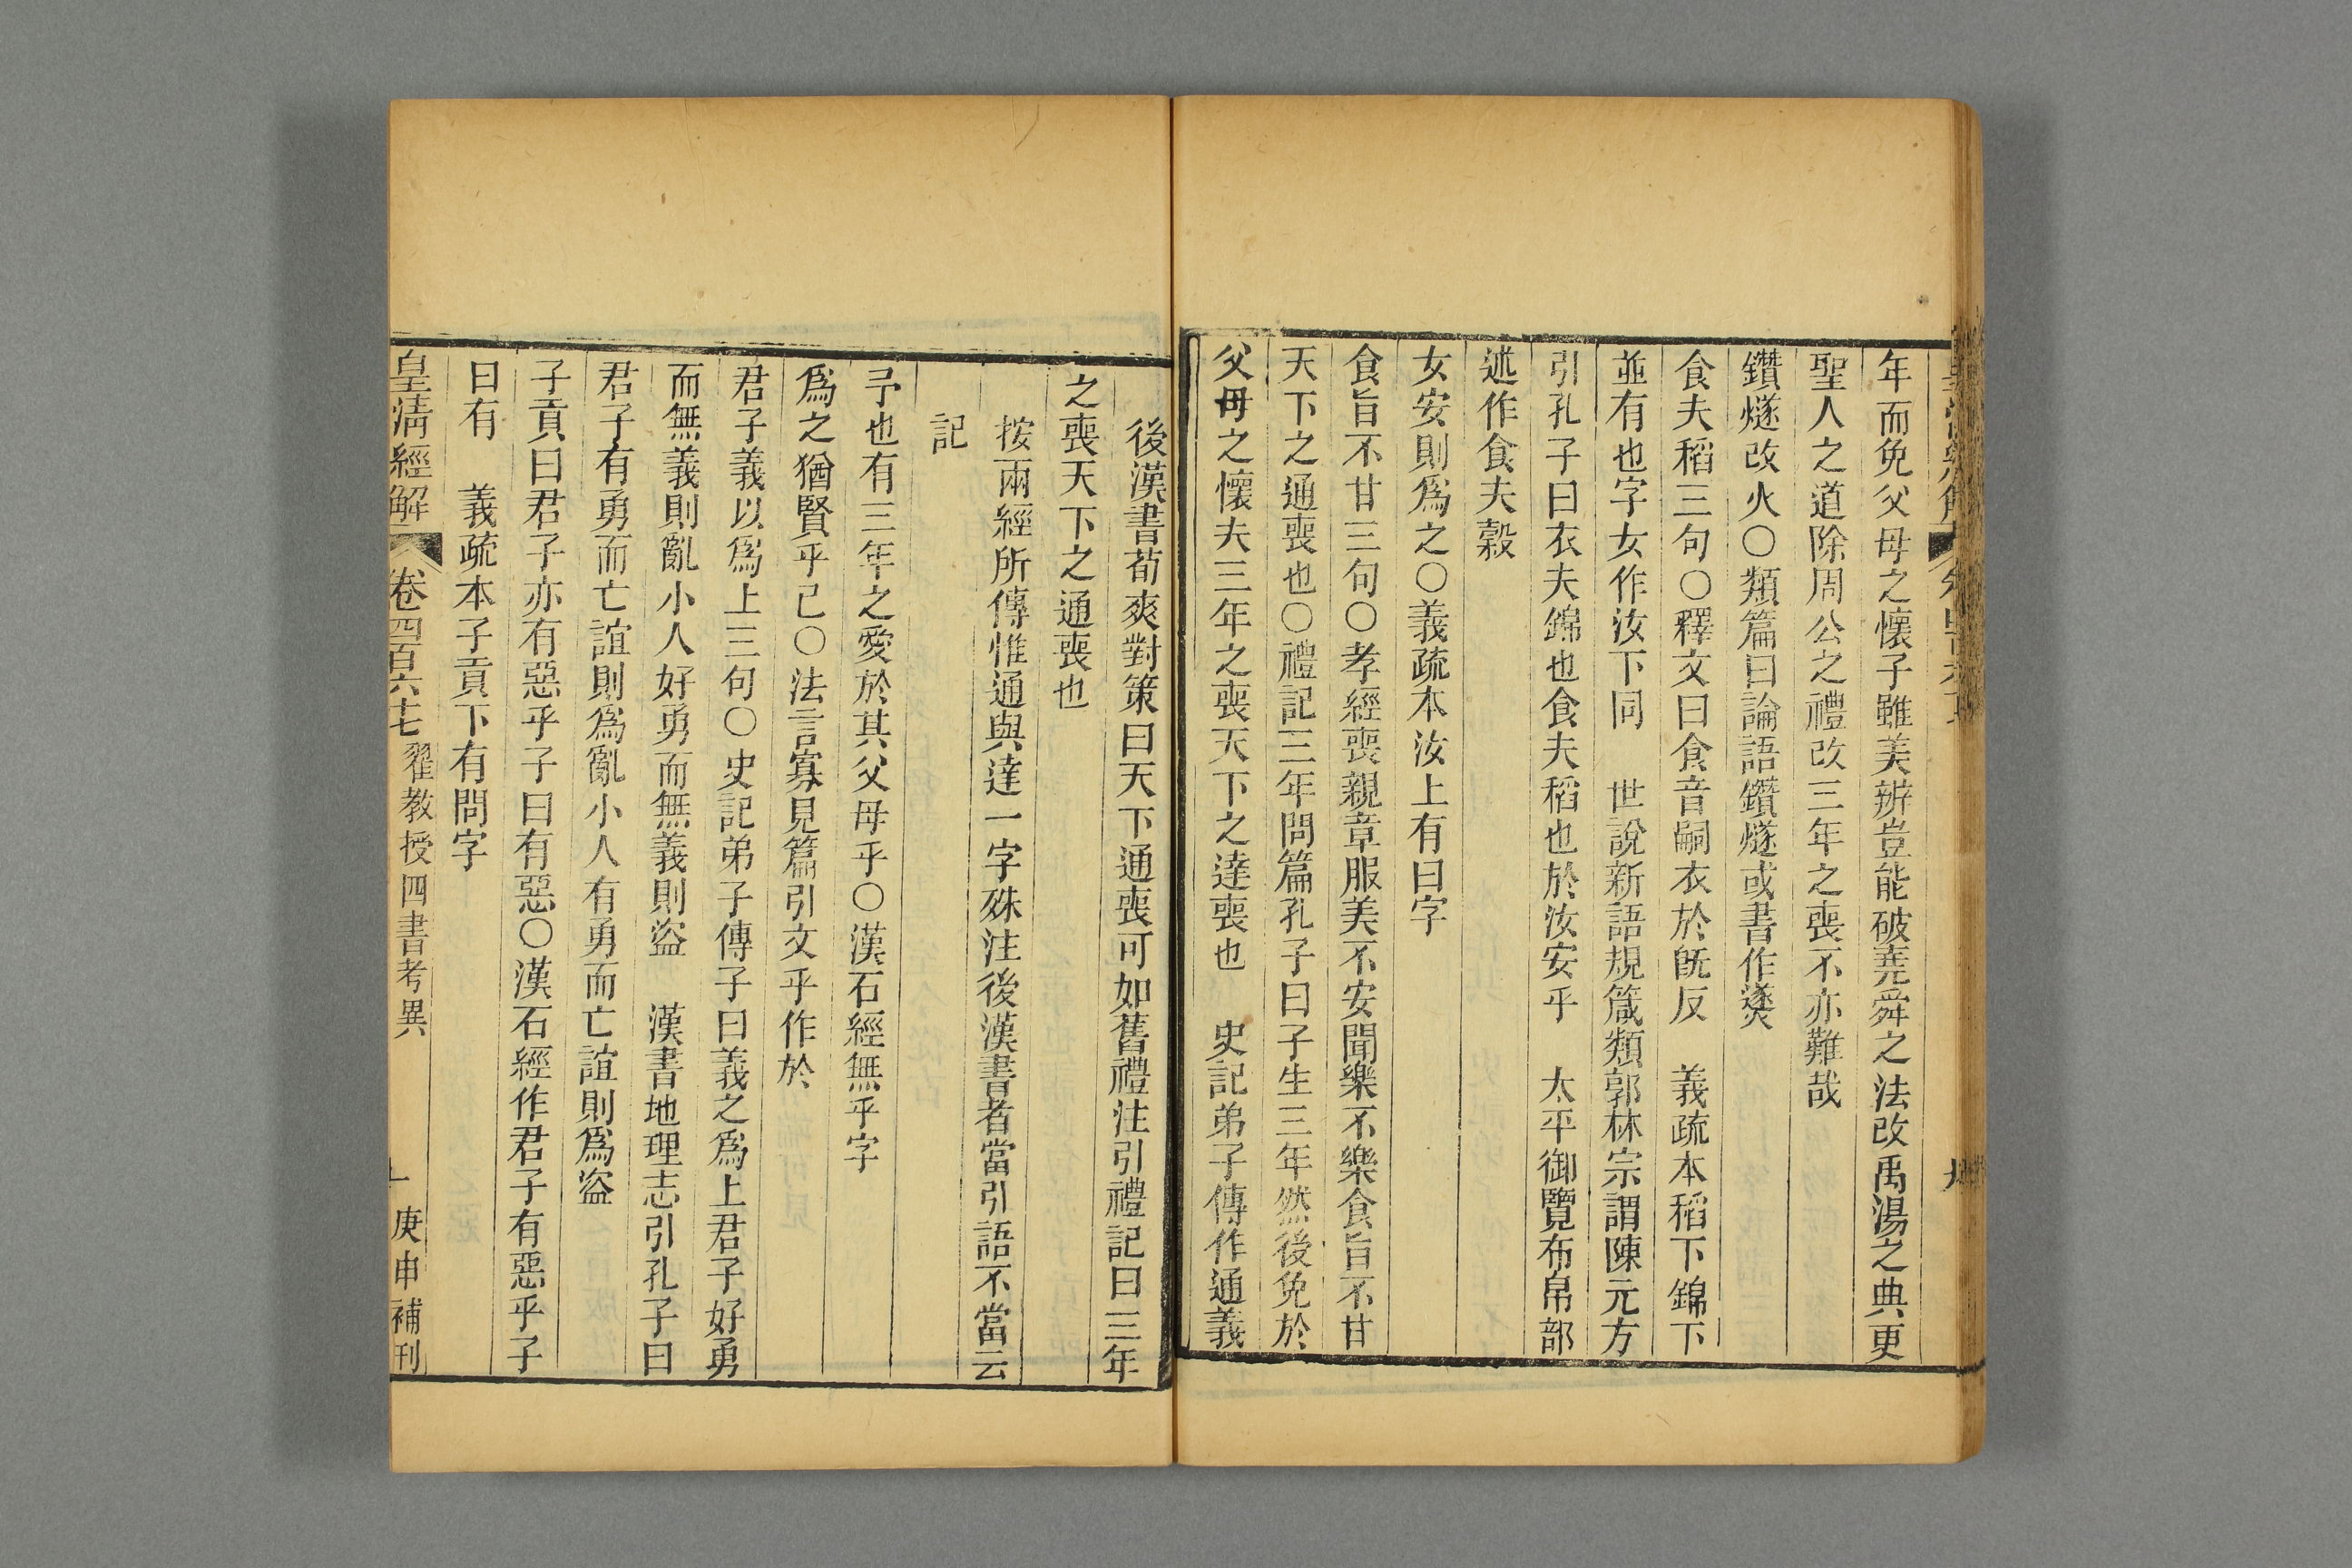 年而免父母之懷子雖美辨豈能破堯舜之法改禹湯之典更
聖人之道除周公之禮改三年之喪不亦難哉
鑽燧改火〇類篇曰論語鑽燧或書作𤐰
食夫稻三句〇釋文曰食音嗣衣於旣反　義疏本稻下錦下
並有也字女作汝下同　世說新語規箴類郭林宗謂陳元方
引孔子曰衣夫錦也食夫稻也於汝安乎　太平御覽布帛部
述作食夫穀
女安則爲之〇義疏本汝上有曰字
食旨不甘三句〇孝經喪親章服美不安聞樂不樂食旨不甘
天下之通喪也〇禮記三年問篇孔子曰子生三年然後免於
父母之懷夫三年之喪天下之達喪也　史記弟子傳作通義
後漢書荀爽對策曰天下通喪可如舊禮注引禮記曰三年
之喪天下之通喪也
按兩經所傳惟通與達一字殊注後漢書者當引語不當云
記
予也有三年之愛於其父母乎〇漢石經無乎字
爲之猶賢乎已〇法言寡見篇引文乎作於
君子義以爲上三句〇史記弟子傳子曰義之爲上君子好勇
而無義則亂小人好勇而無義則盜　漢書地理志引孔子曰
君子有勇而亡誼則爲亂小人有勇而亡誼則爲盜
子貢曰君子亦有惡乎子曰有惡〇漢石經作君子有惡乎子
曰有　義疏本子貢下有問字
皇清經解　卷四百六十七　翟教授四書考異　庚申補刊